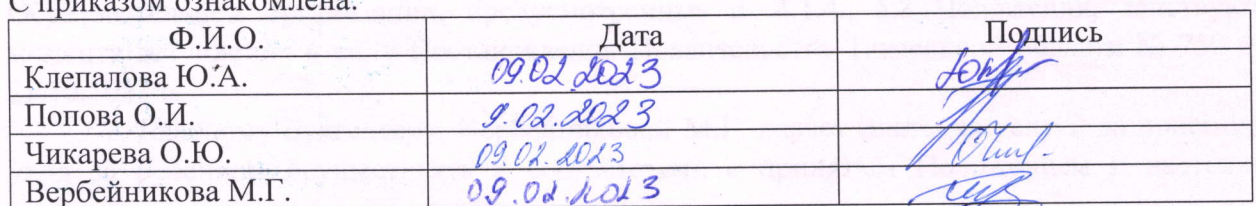 С приказом ознакомлена:
Ф.И.О. Дата Подпись
Клепалова Ю.А. 09.02.2023
Попова О.И. 9.02.2023
Чикарева О.Ю. 09.02.2023
Вербейникова М.Г. 09.02.2023